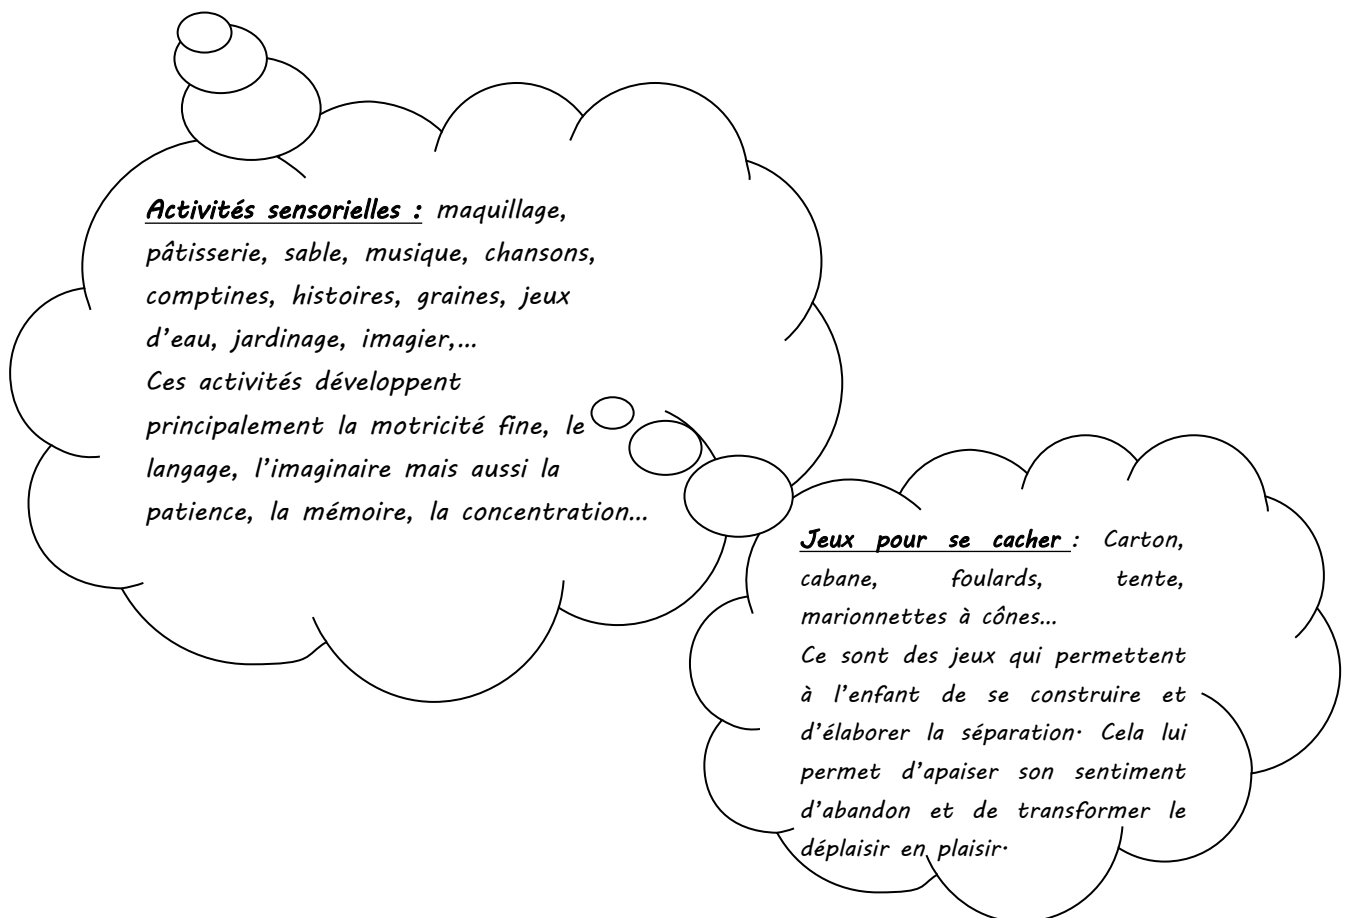 Activités sensorielles : maquillage,
pâtisserie, sable, musique, chansons,
comptines, histoires, graines, jeux
d’eau, jardinage, imagier,…
Ces activités développent
principalement la motricité fine, le
langage, l’imaginaire mais aussi la
patience, la mémoire, la concentration…
Jeux pour se cacher : Carton,
cabane, foulards, tente,
marionnettes à cônes…
Ce sont des jeux qui permettent
à l’enfant de se construire et
d’élaborer la séparation. Cela lui
permet d’apaiser son sentiment
d’abandon et de transformer le
déplaisir en plaisir.